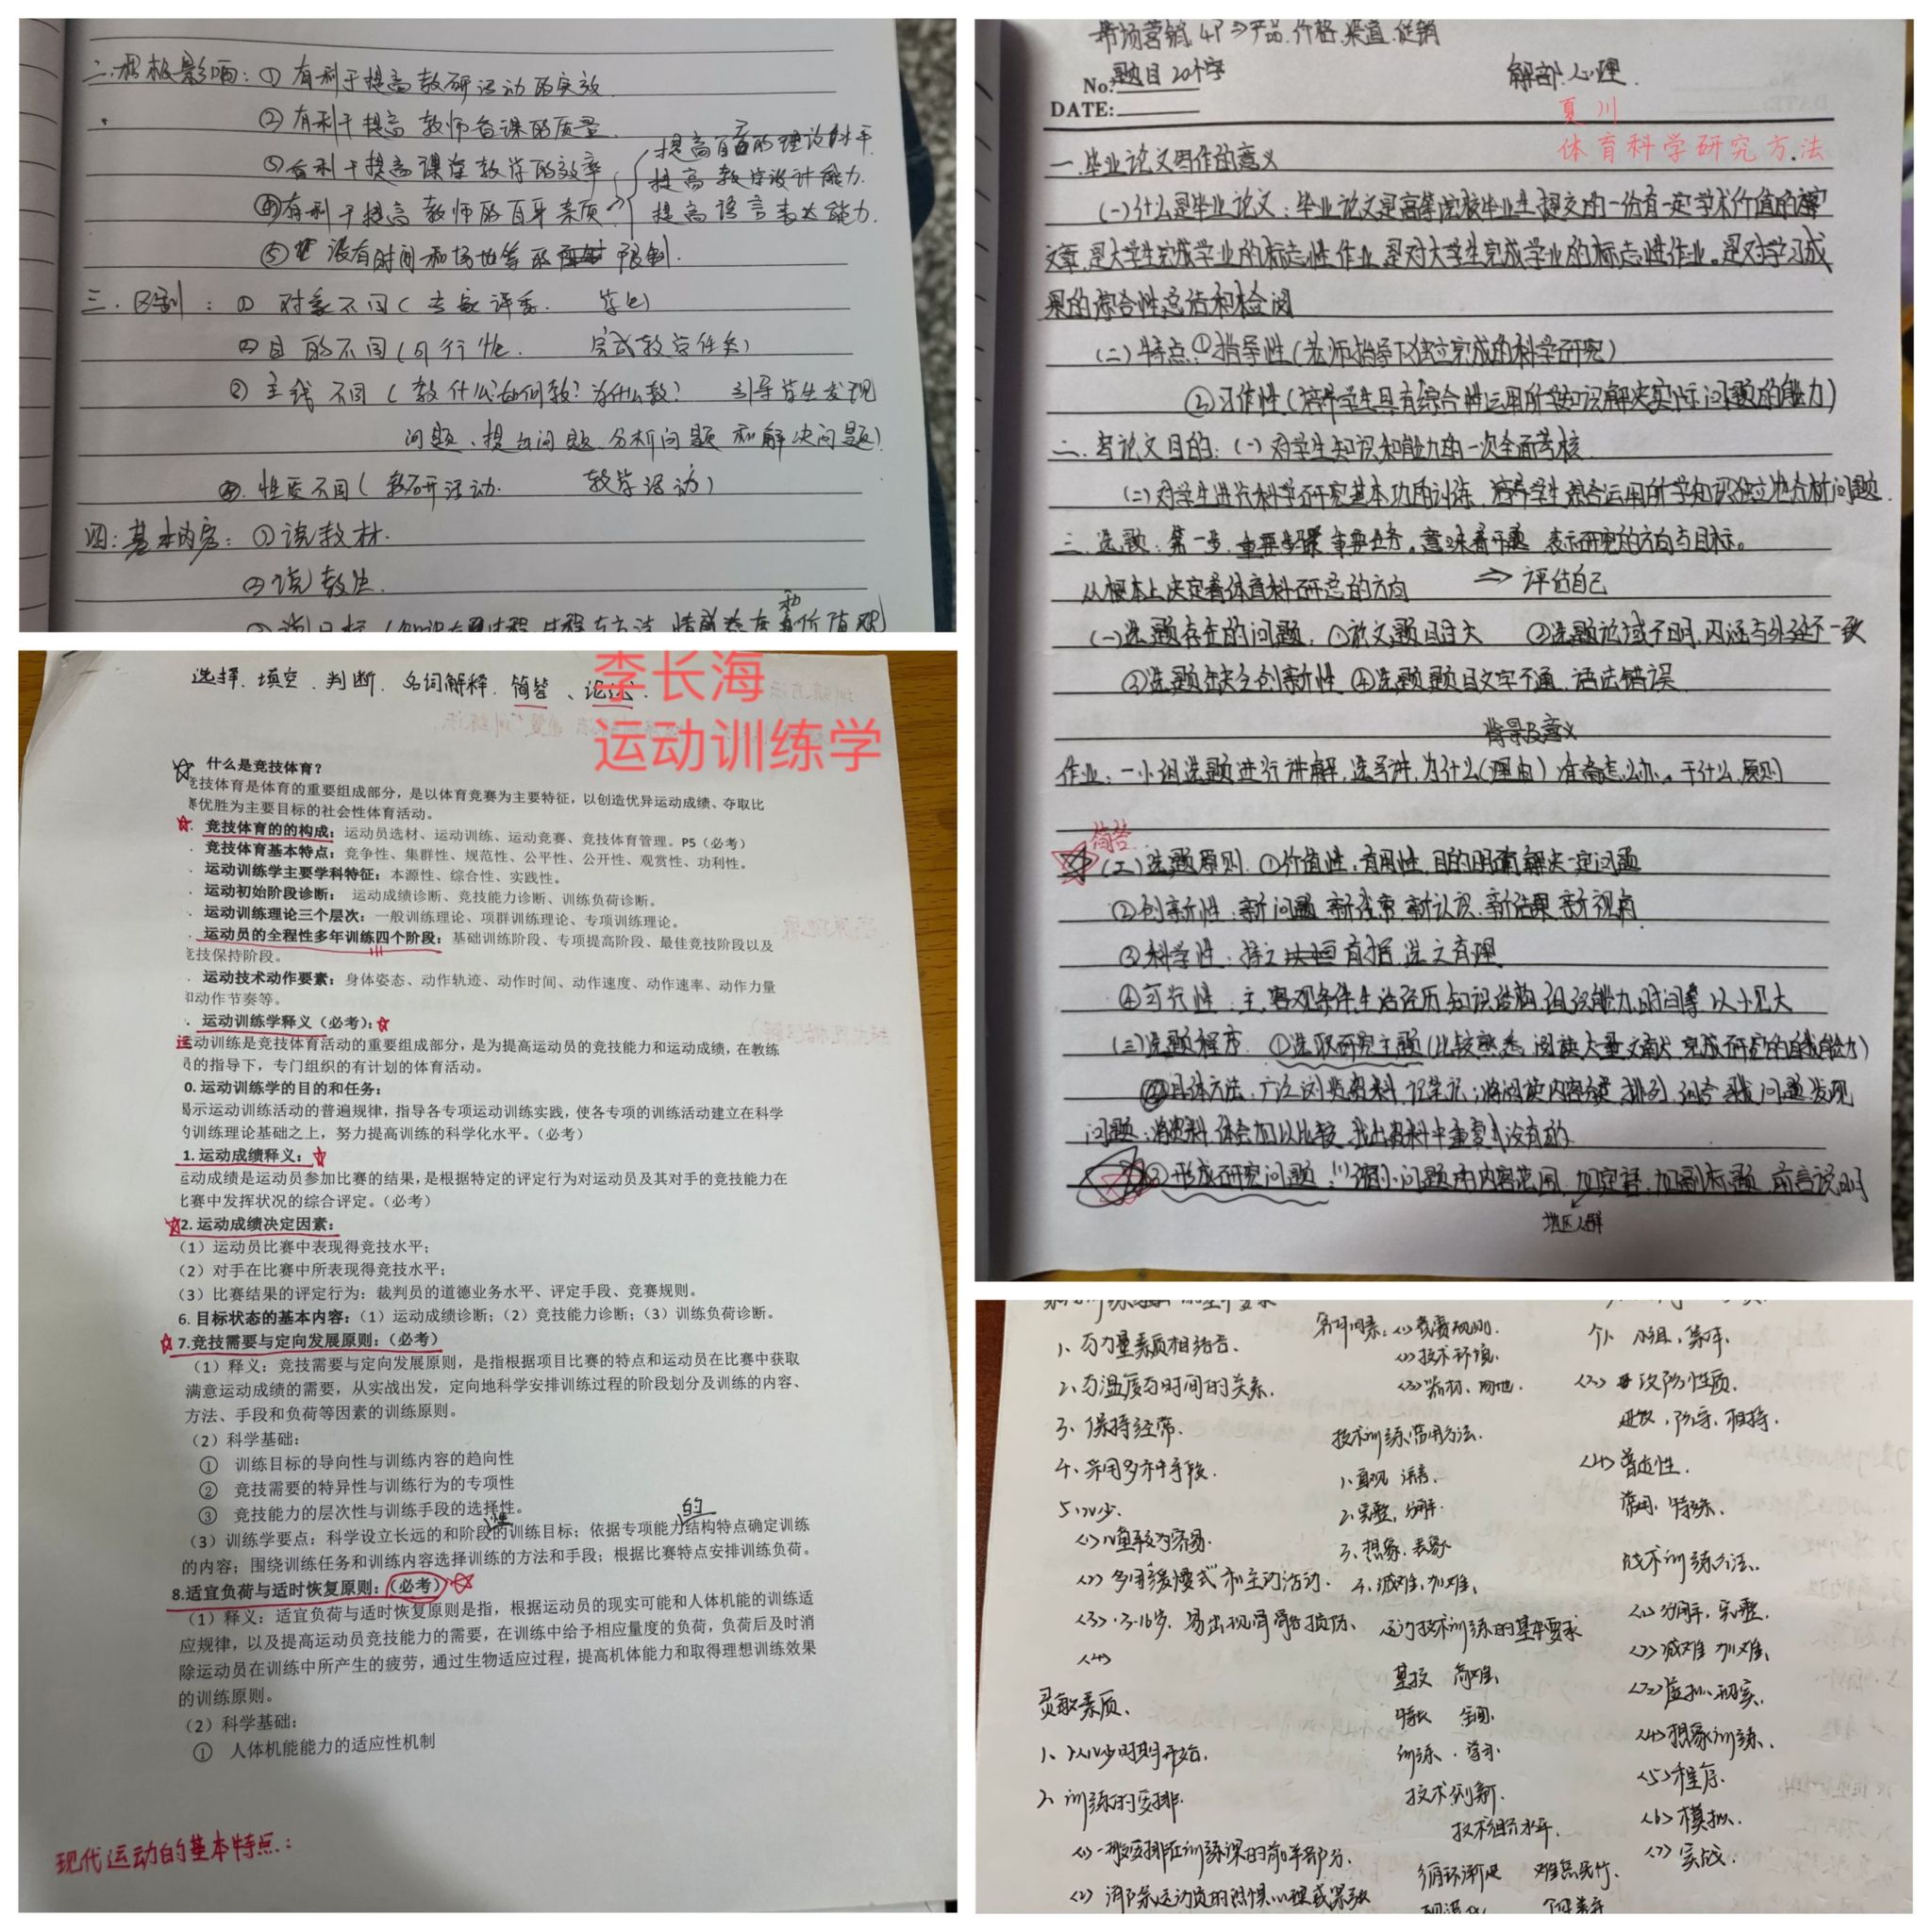 二.积极影响:①有利于提高教研活动的实效.
②有利于提高教师备课的质量.
③有利于提高课堂教学的效率
④有利于提高教师的自身素质
提高自己的理论水平.
提高教学设计能力.
提高语言表达能力.
⑤没有时间和场地等的限制.
三.区别:①对象不同(专家评委. 学生)
②目的不同(可行性. 完成教学任务)
③主线不同(教什么?如何教?为什么教? 引导学生发现
问题、提出问题、分析问题和解决问题)
④.性质不同(教研活动. 教学活动)
四:基本内容:①说教材.
②说教法.
选择.填空.判断.名词解释.简答、论述.
李长海
运动训练学
什么是竞技体育?
竞技体育是体育的重要组成部分,是以体育竞赛为主要特征,以创造优异运动成绩、夺取比
赛优胜为主要目标的社会性体育活动。
竞技体育的的构成:运动员选材、运动训练、运动竞赛、竞技体育管理。P5(必考)
竞技体育基本特点:竞争性、集群性、规范性、公平性、公开性、观赏性、功利性。
运动训练学主要学科特征:本源性、综合性、实践性。
运动初始阶段诊断: 运动成绩诊断、竞技能力诊断、训练负荷诊断。
运动训练理论三个层次:一般训练理论、项群训练理论、专项训练理论。
运动员的全程性多年训练四个阶段:基础训练阶段、专项提高阶段、最佳竞技阶段以及
竞技保持阶段。
运动技术动作要素:身体姿态、动作轨迹、动作时间、动作速度、动作速率、动作力量
和动作节奏等。
运动训练学释义(必考):
运动训练是竞技体育活动的重要组成部分,是为提高运动员的竞技能力和运动成绩,在教练
员的指导下,专门组织的有计划的体育活动。
0.运动训练学的目的和任务:
揭示运动训练活动的普遍规律,指导各专项运动训练实践,使各专项的训练活动建立在科学
的训练理论基础之上,努力提高训练的科学化水平。(必考)
1.运动成绩释义:
运动成绩是运动员参加比赛的结果,是根据特定的评定行为对运动员及其对手的竞技能力在
比赛中发挥状况的综合评定。(必考)
2.运动成绩决定因素:
(1)运动员比赛中表现得竞技水平;
(2)对手在比赛中所表现得竞技水平;
(3)比赛结果的评定行为:裁判员的道德业务水平、评定手段、竞赛规则。
6.目标状态的基本内容:(1)运动成绩诊断;(2)竞技能力诊断;(3)训练负荷诊断。
7.竞技需要与定向发展原则:(必考)
(1)释义:竞技需要与定向发展原则,是指根据项目比赛的特点和运动员在比赛中获取
满意运动成绩的需要,从实战出发,定向地科学安排训练过程的阶段划分及训练的内容、
方法、手段和负荷等因素的训练原则。
(2)科学基础:
① 训练目标的导向性与训练内容的趋向性
② 竞技需要的特异性与训练行为的专项性
③ 竞技能力的层次性与训练手段的选择性。
的
(3)训练学要点:科学设立长远的和阶段的训练目标;依据专项能力结构特点确定训练
的内容;围绕训练任务和训练内容选择训练的方法和手段;根据比赛特点安排训练负荷。
8.适宜负荷与适时恢复原则:(必考)
(1)释义:适宜负荷与适时恢复原则是指,根据运动员的现实可能和人体机能的训练适
应规律,以及提高运动员竞技能力的需要,在训练中给予相应量度的负荷,负荷后及时消
除运动员在训练中所产生的疲劳,通过生物适应过程,提高机体能力和取得理想训练效果
的训练原则。
(2)科学基础:
① 人体机能能力的适应性机制
现代运动的基本特点:
市场营销 4P⇒产品.价格.渠道.促销
No: 题目20个字
解剖.心理.
DATE:
夏川
体育科学研究方法
一.毕业论文写作的意义
(一)什么是毕业论文:毕业论文是高等院校毕业生提交的一份有一定学术价值的
文章.是大学生完成学业的标志性作业.是对大学生完成学业的标志性作业。是对学习成
果的综合性总结和检阅
(二)特点.①指导性(老师指导下独立完成的科学研究)
②习作性(培养学生具有综合性运用所学知识解决实际问题的能力)
二.写论文目的:(一)对学生知识和能力的一次全面考核.
(二)对学生进行科学研究基本功的训练,培养学生综合运用所学知识独立地分析问题.
三.选题:第一步.重要步骤 重要任务。意味着开题 表示研究的方向与目标。
从根本上决定着体育科研究的方向 ⇒评估自己
(一)选题存在的问题.①论文题目过大 ②选题论域不明,内涵与外延不一致
③选题缺乏创新性 ④选题题目文字不通.语法错误
背景及意义
作业:一小组选题进行讲解,选写讲.为什么(理由)准备怎么办。干什么.原则
简答
(二)选题原则.①价值性:有用性.目的明确解决一定问题
②创新性:新问题 新 新认识.新结果 新视角
③科学性:持之有据 言之有理
④可行性:主.客观条件生活经历知识结构.组织能力.时间等 以小见大
(三)选题程序.①选取研究主题(比较熟悉.阅读大量文献.完成研究的能力)
②具体方法.广泛浏览资料.记笔记;将阅读内容分类.排列.组合 寻找问题发现
问题;将资料体会加以比较 找出资料中重复 没有的.
③形成研究问题:(1)缩小问题的内容范围.加定语.加副标题 前言说明
地区人群
1、与力量素质相结合.
2、与温度与时间的关系.
3、保持经常.
4、采用多种手段.
5、少.
<2>多用“缓慢式”和主动活动.
灵敏素质.
1、从少时期开始.
2、训练的安排.
<1>一般安排在训练课的前半部分.
<2>消除运动员的恐惧心理或紧张
<1>竞赛规则.
<2>技术环境.
<3>器材、场地.
技术训练常用方法.
1、直观 语言.
2、完整、分解.
3、想象、表象
4、减难、加难.
运动技术训练的基本要求
基技 高难.
特长 全面.
训练、学习.
技术创新.
循环渐进 难点先行.
个人 小组、集体.
<3>攻防性质.
进攻、防守、相持.
<4>普适性.
常用、特殊.
战术训练方法.
<1>分解、完整.
<2>减难 加难.
<3>虚拟、现实.
<4>想象训练.
<5>程序.
<6>模拟.
<7>实战.